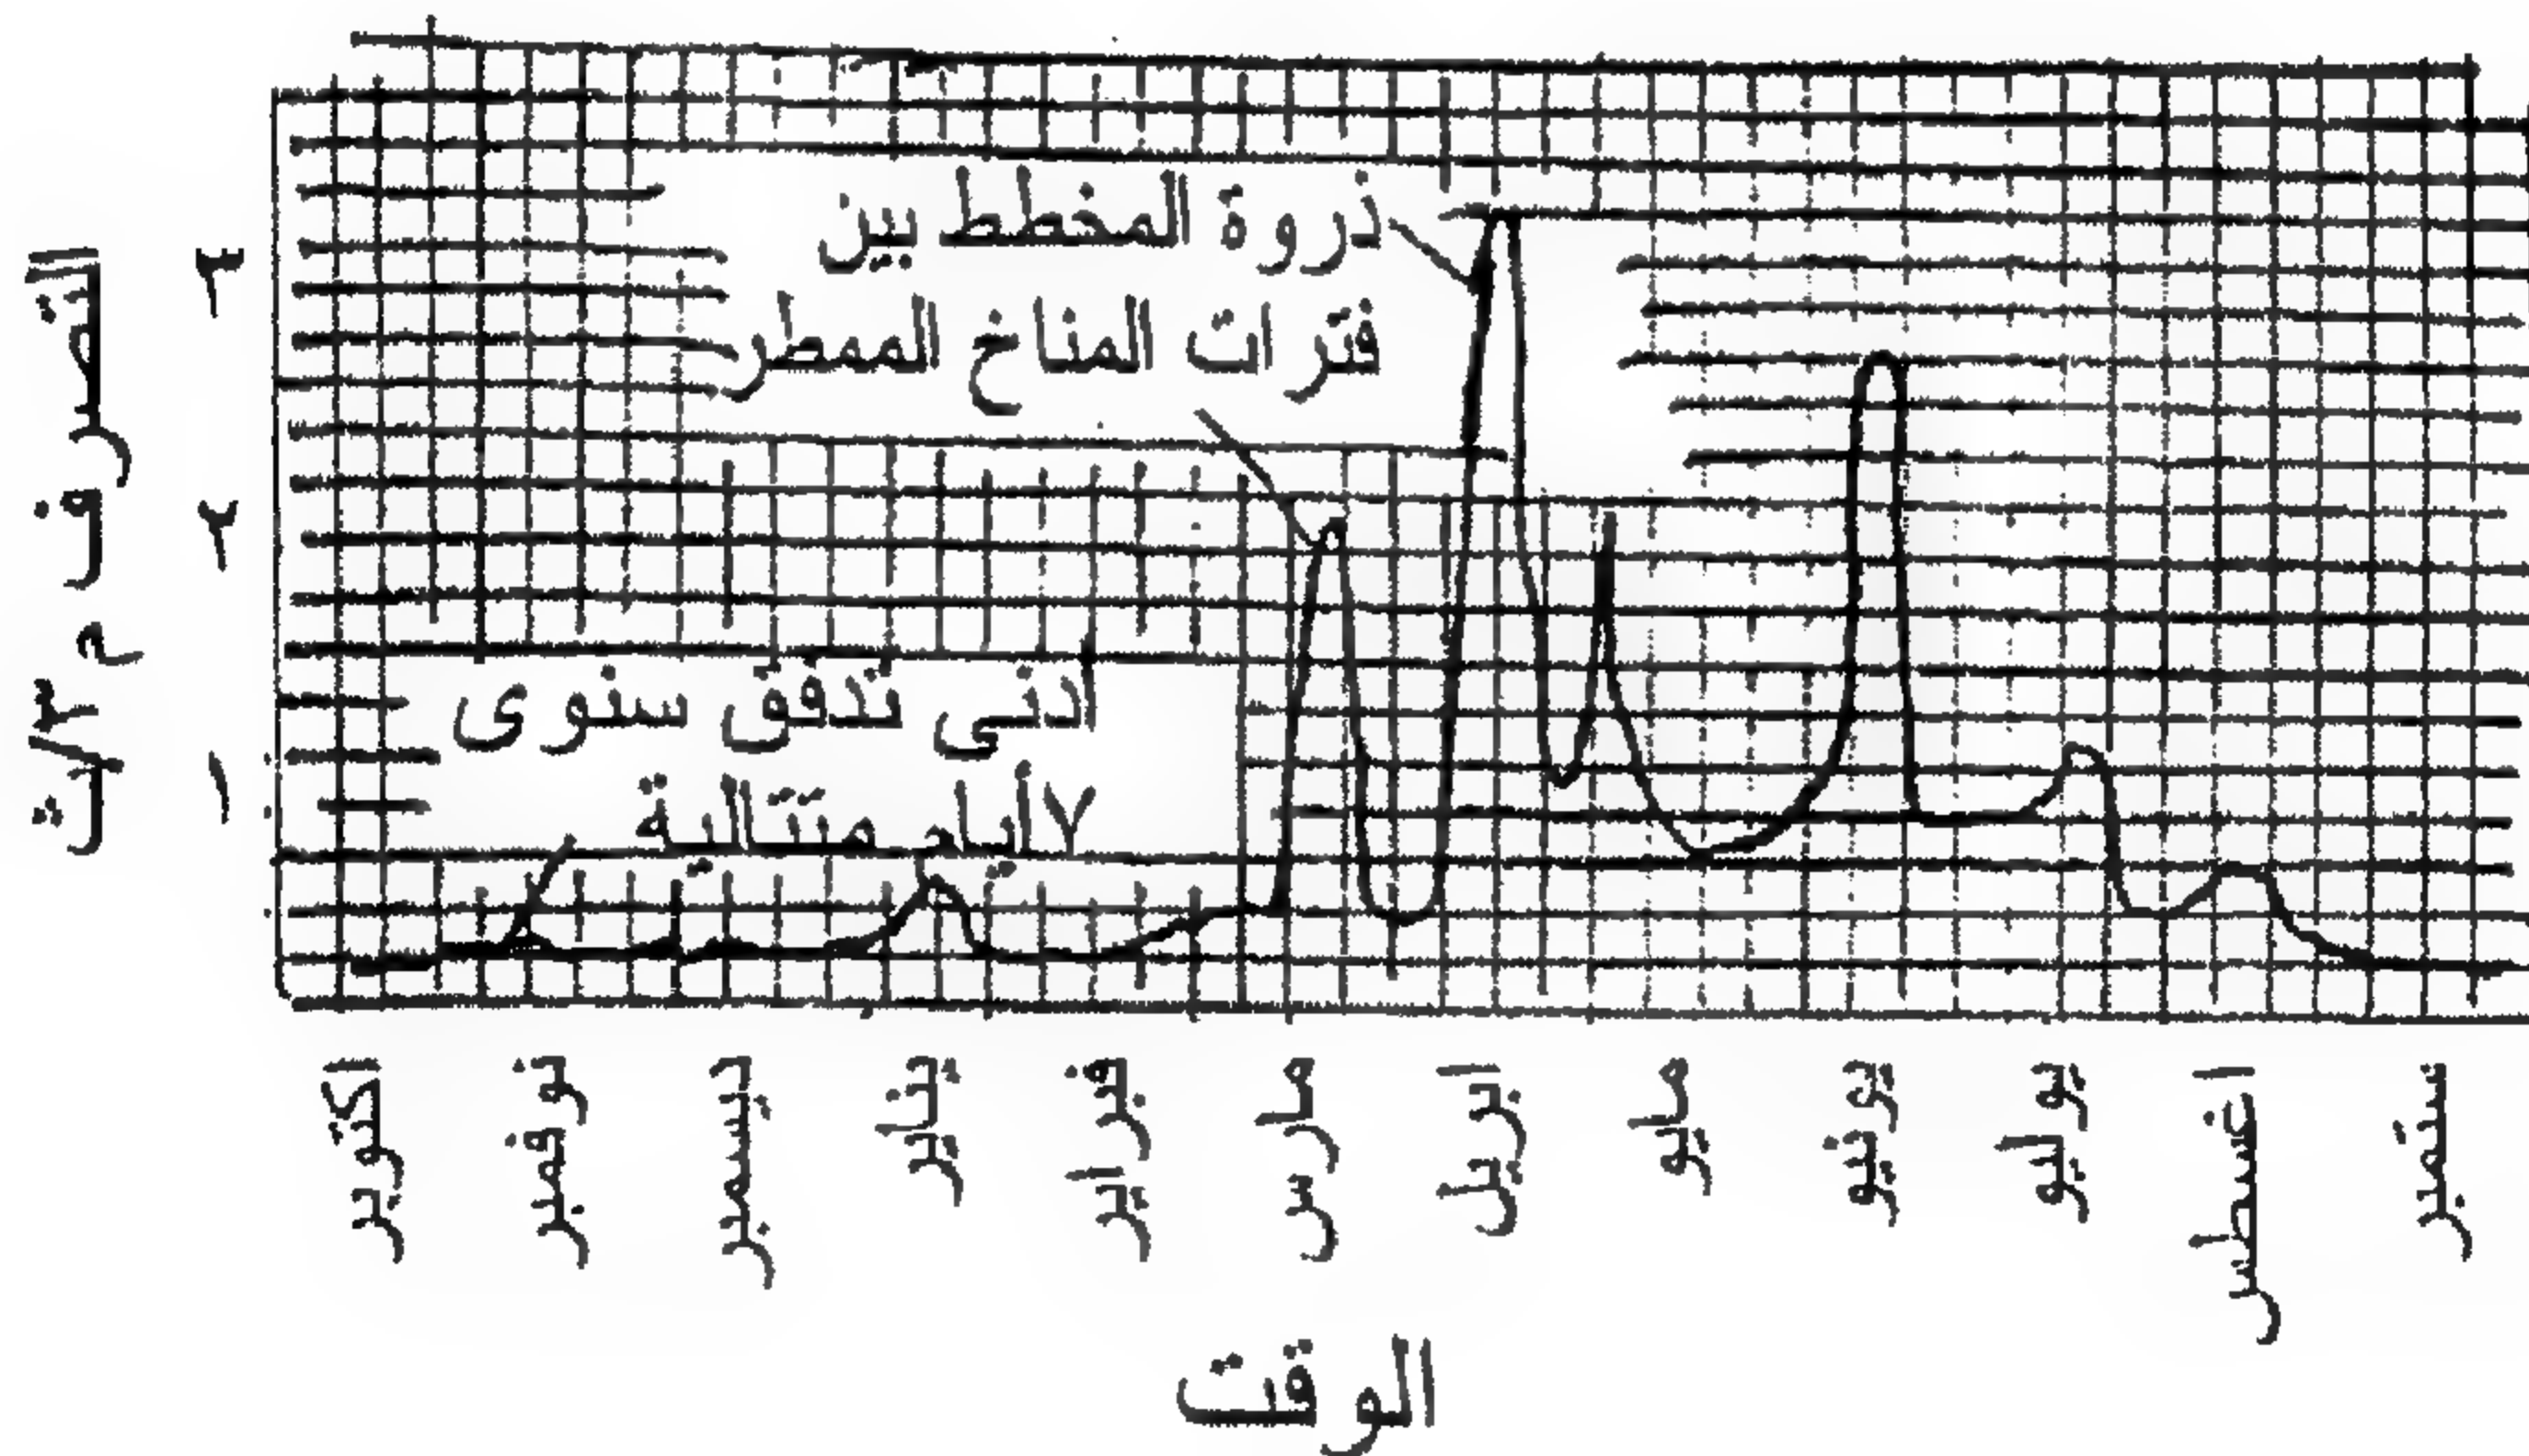 ذروة المخطط بين
فترات المناخ الممطر
أدنى تدفق سنوى
٧أيام متتالية
التصرف م٣/ث
٣
٢
١
اكتوبر
نوفمبر
ديسمبر
يناير
فبراير
مارس
ابريل
مايو
يونيو
يوليو
اغسطس
سبتمبر
الوقت